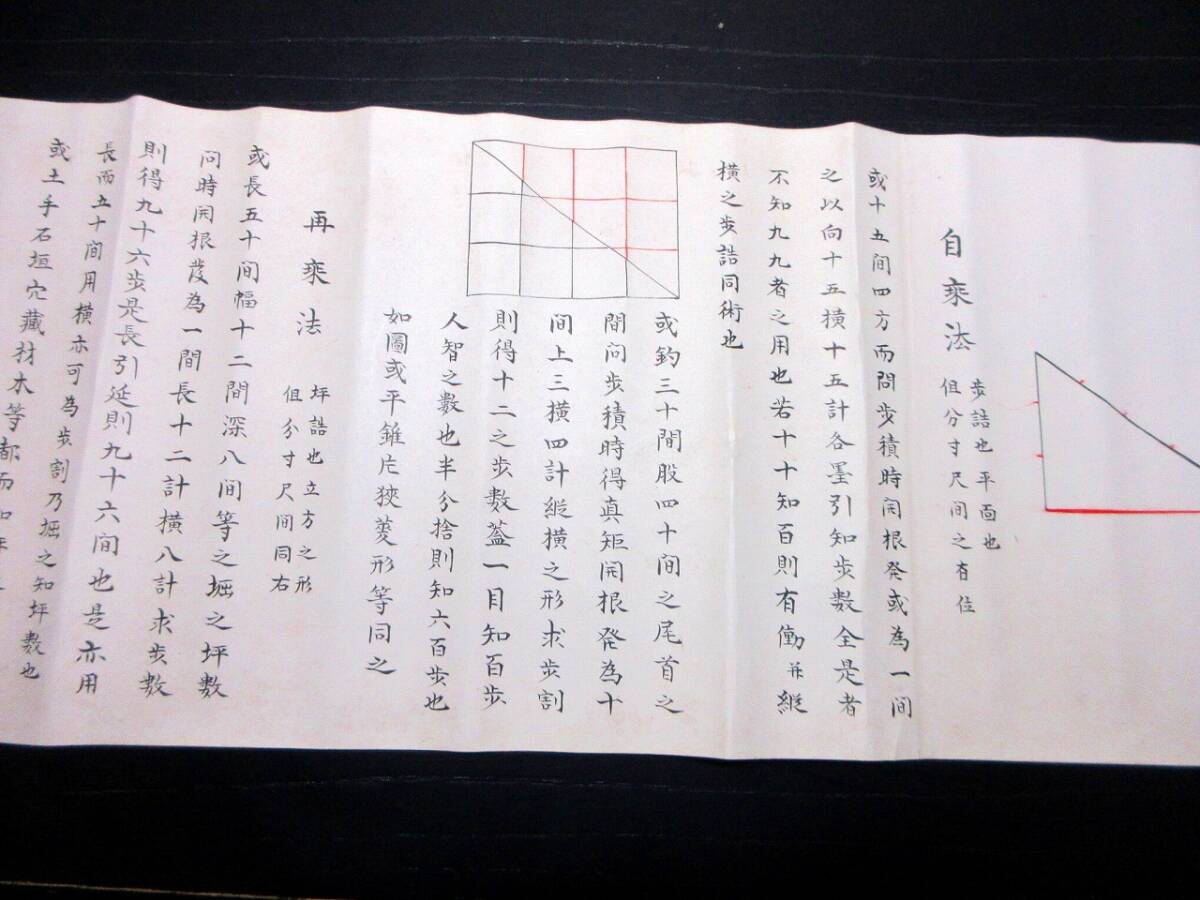 自乗法
歩詰也平面也
但分寸尺间之有位
或十五间四方而問歩積時開根発或為一间
之以向十五横十五計各墨引知歩数全是者
不知九九者之用也若十十知百則有働并縦
横之歩詰同術也
或釣三十間股四十间之尾首之
間问歩積時得真矩開根発為十
间上三横四計縦横之形求歩割
則得十二之歩数蓋一目知百歩
人智之數也半分捨則知六百歩也
如圖或平錐片狹菱形等同之
再乗法
坪詰也立方之形
但分寸尺间同右
或長五十间幅十二間深八间等之堀之坪数
问時開根發為一間長十二計横八計求歩数
則得九十六歩是長引延則九十六间也是亦用
長而五十间用横亦可為歩割乃堀之知坪数也
或土手石垣穴藏材木等都而知坪